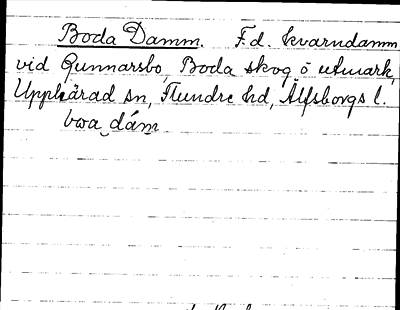 Boda Damm. F.d. kvarndamm
vid Gunnarsbo, Boda skog o utmark,
Upphärad sn, Flundre hd, Älfsborgs l.
bωa dám